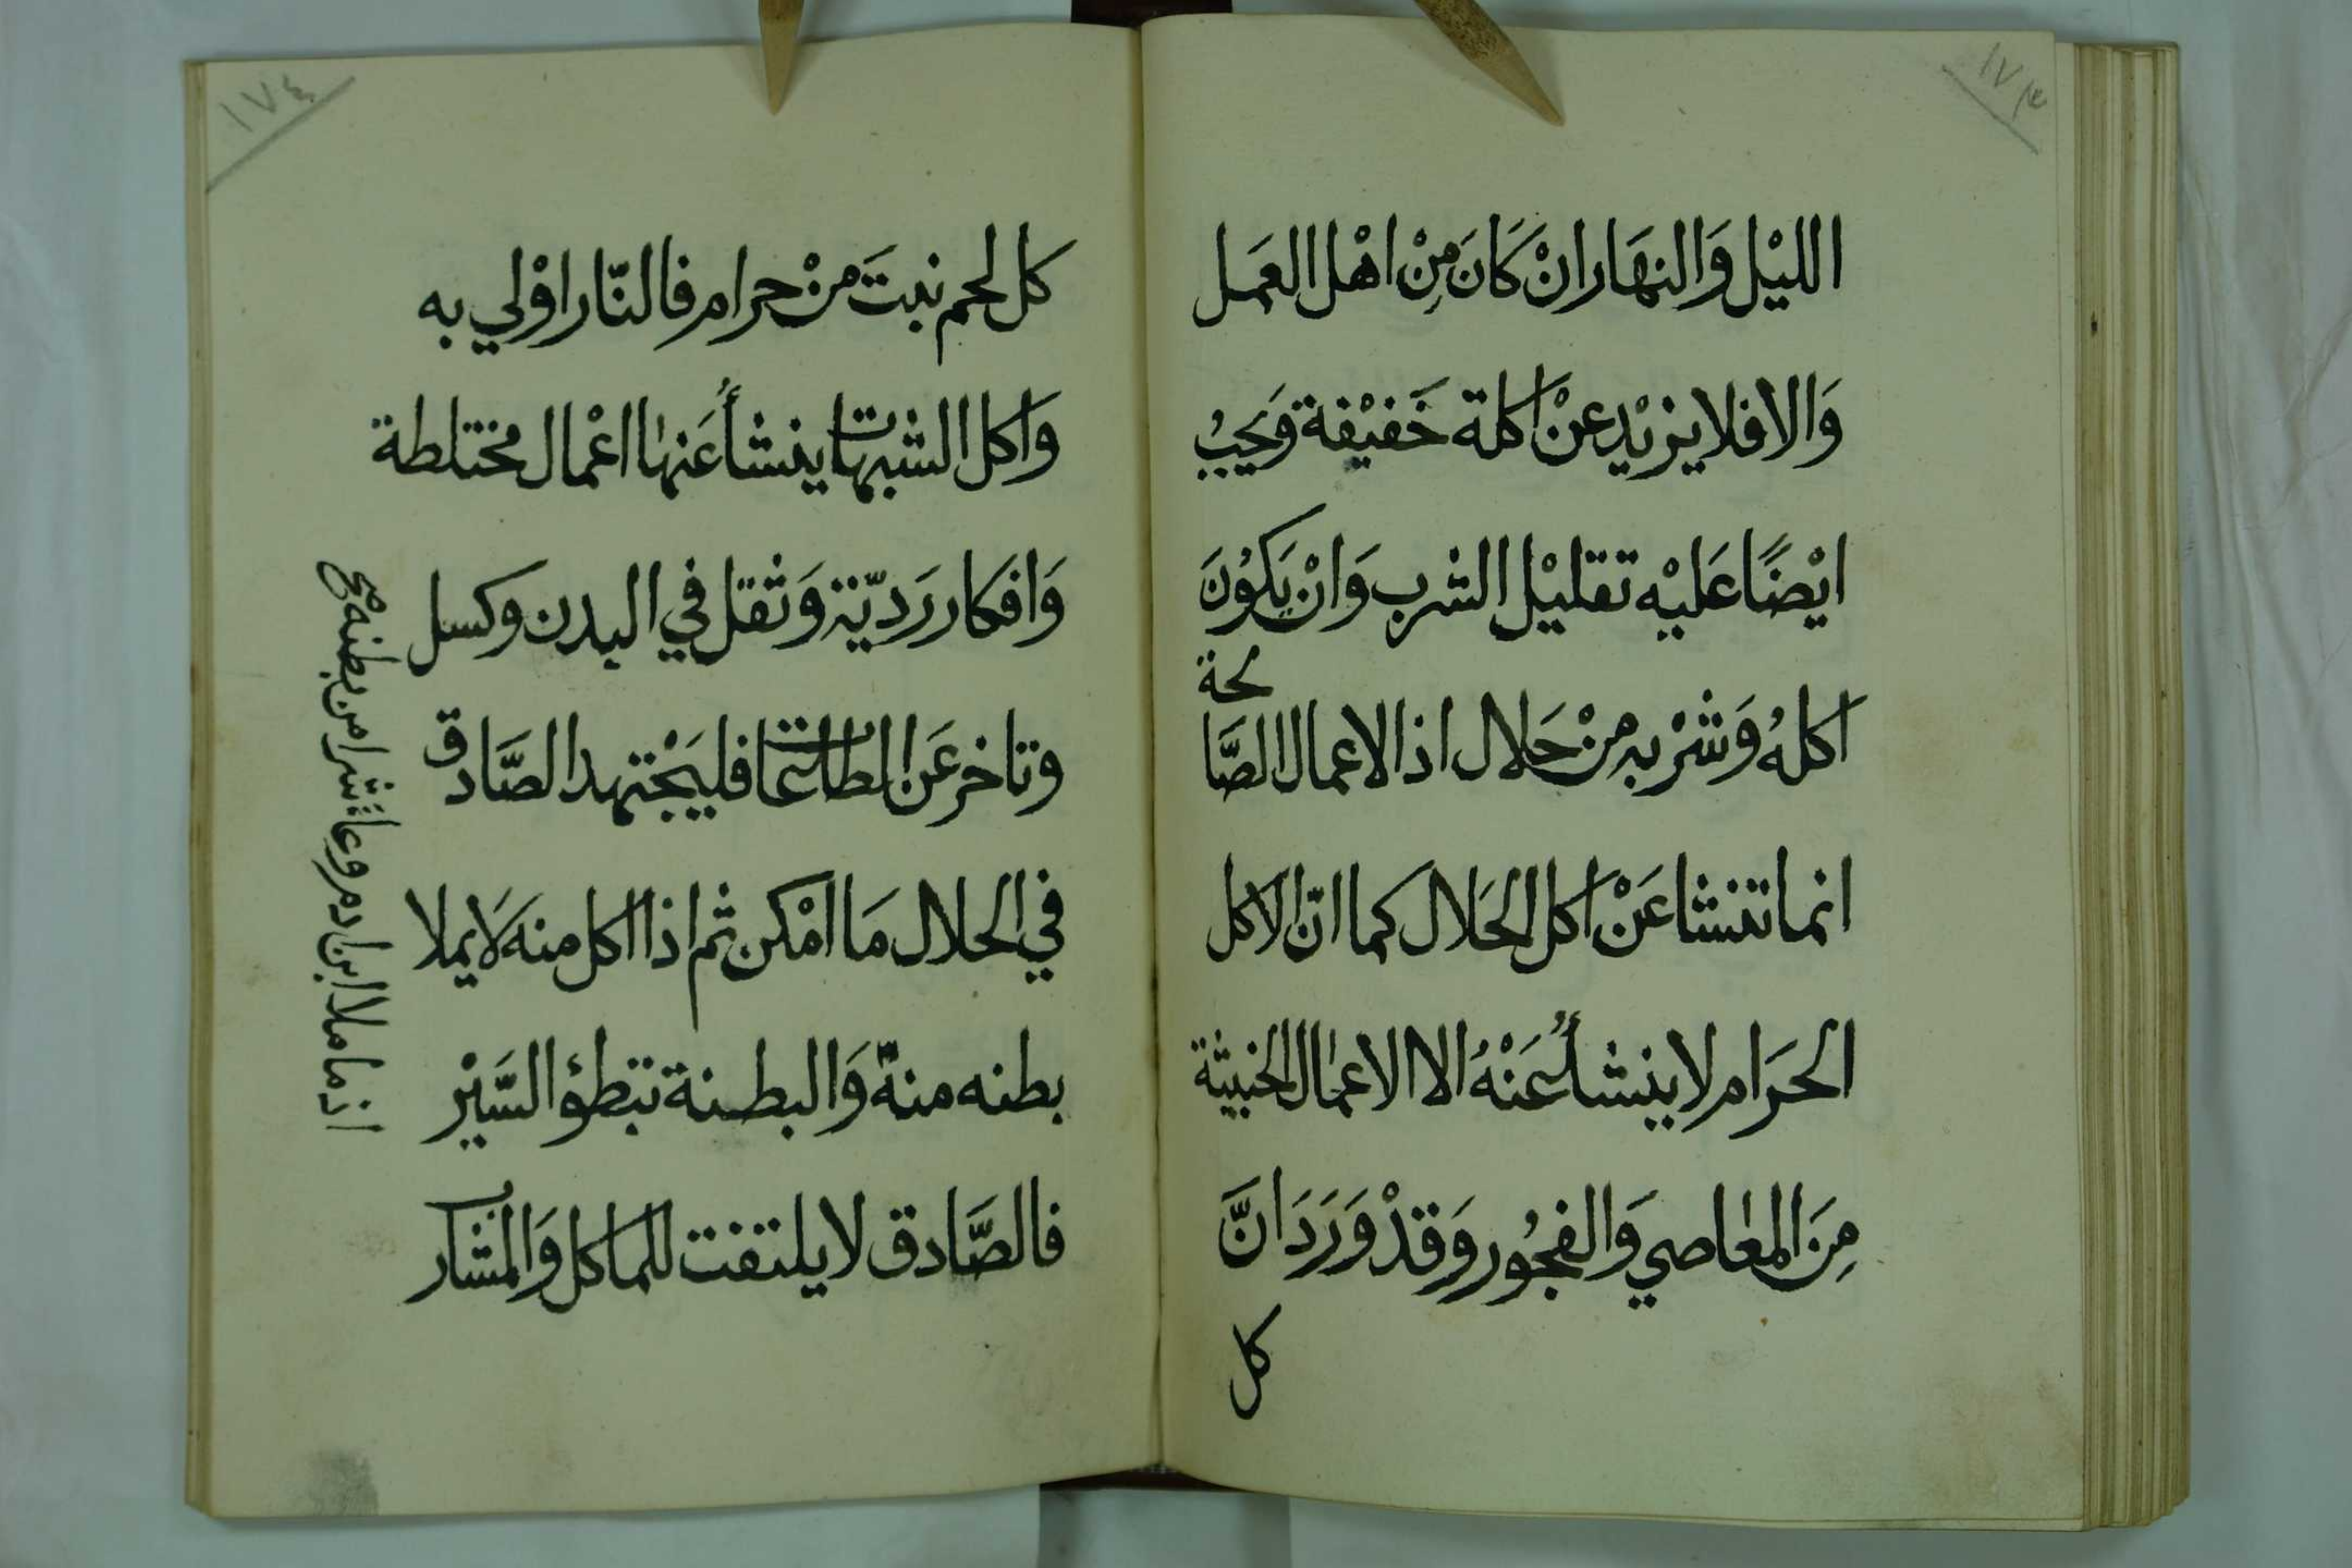 ١٧٣
الليْل وَالنهَار انْ كَانَ مِنْ اهْل العَمل
وَالا فلا يزيْد عنْ اَكلة خَفيْفة وَيَجبُ
ايْضًا عَليْه تقليْل الشرب وَانْ يَكوُنَ
اَكلهُ وَشرْبه منْ حَلال اذ الاعمال الصَّالحة
انما تنشا عَنْ اَكل الحَلال كما انّ الاَكل
الحرَام لا ينشأُ عَنْهُ الا الاعمَال الخبيثة
مِنَ المعَاصي وَالفجُور وَقدْ وَرَدَ انَّ
كل
١٧٤
كل لحم نبتَ منْ حرام فالنّار اوْلي به
وَاَكل الشبهات ينشأُ عَنهَا اعْمال مختلطة
وَافكَار رَديّة وَثقل في البدن وكسل
وتاخر عَن الطاعات فليَجْتهد الصَّادق
في الحلال مَا امْكن ثم اذا اكل منهَ لاَ يملا
بطنه منهُ وَالبطنة تبطؤ السَّيْر
فالصَّادق لا يلتفت للماَكل وَالمشَارب
اذ ما ملا ابن ادم وعاءً شرا من بطنه صح